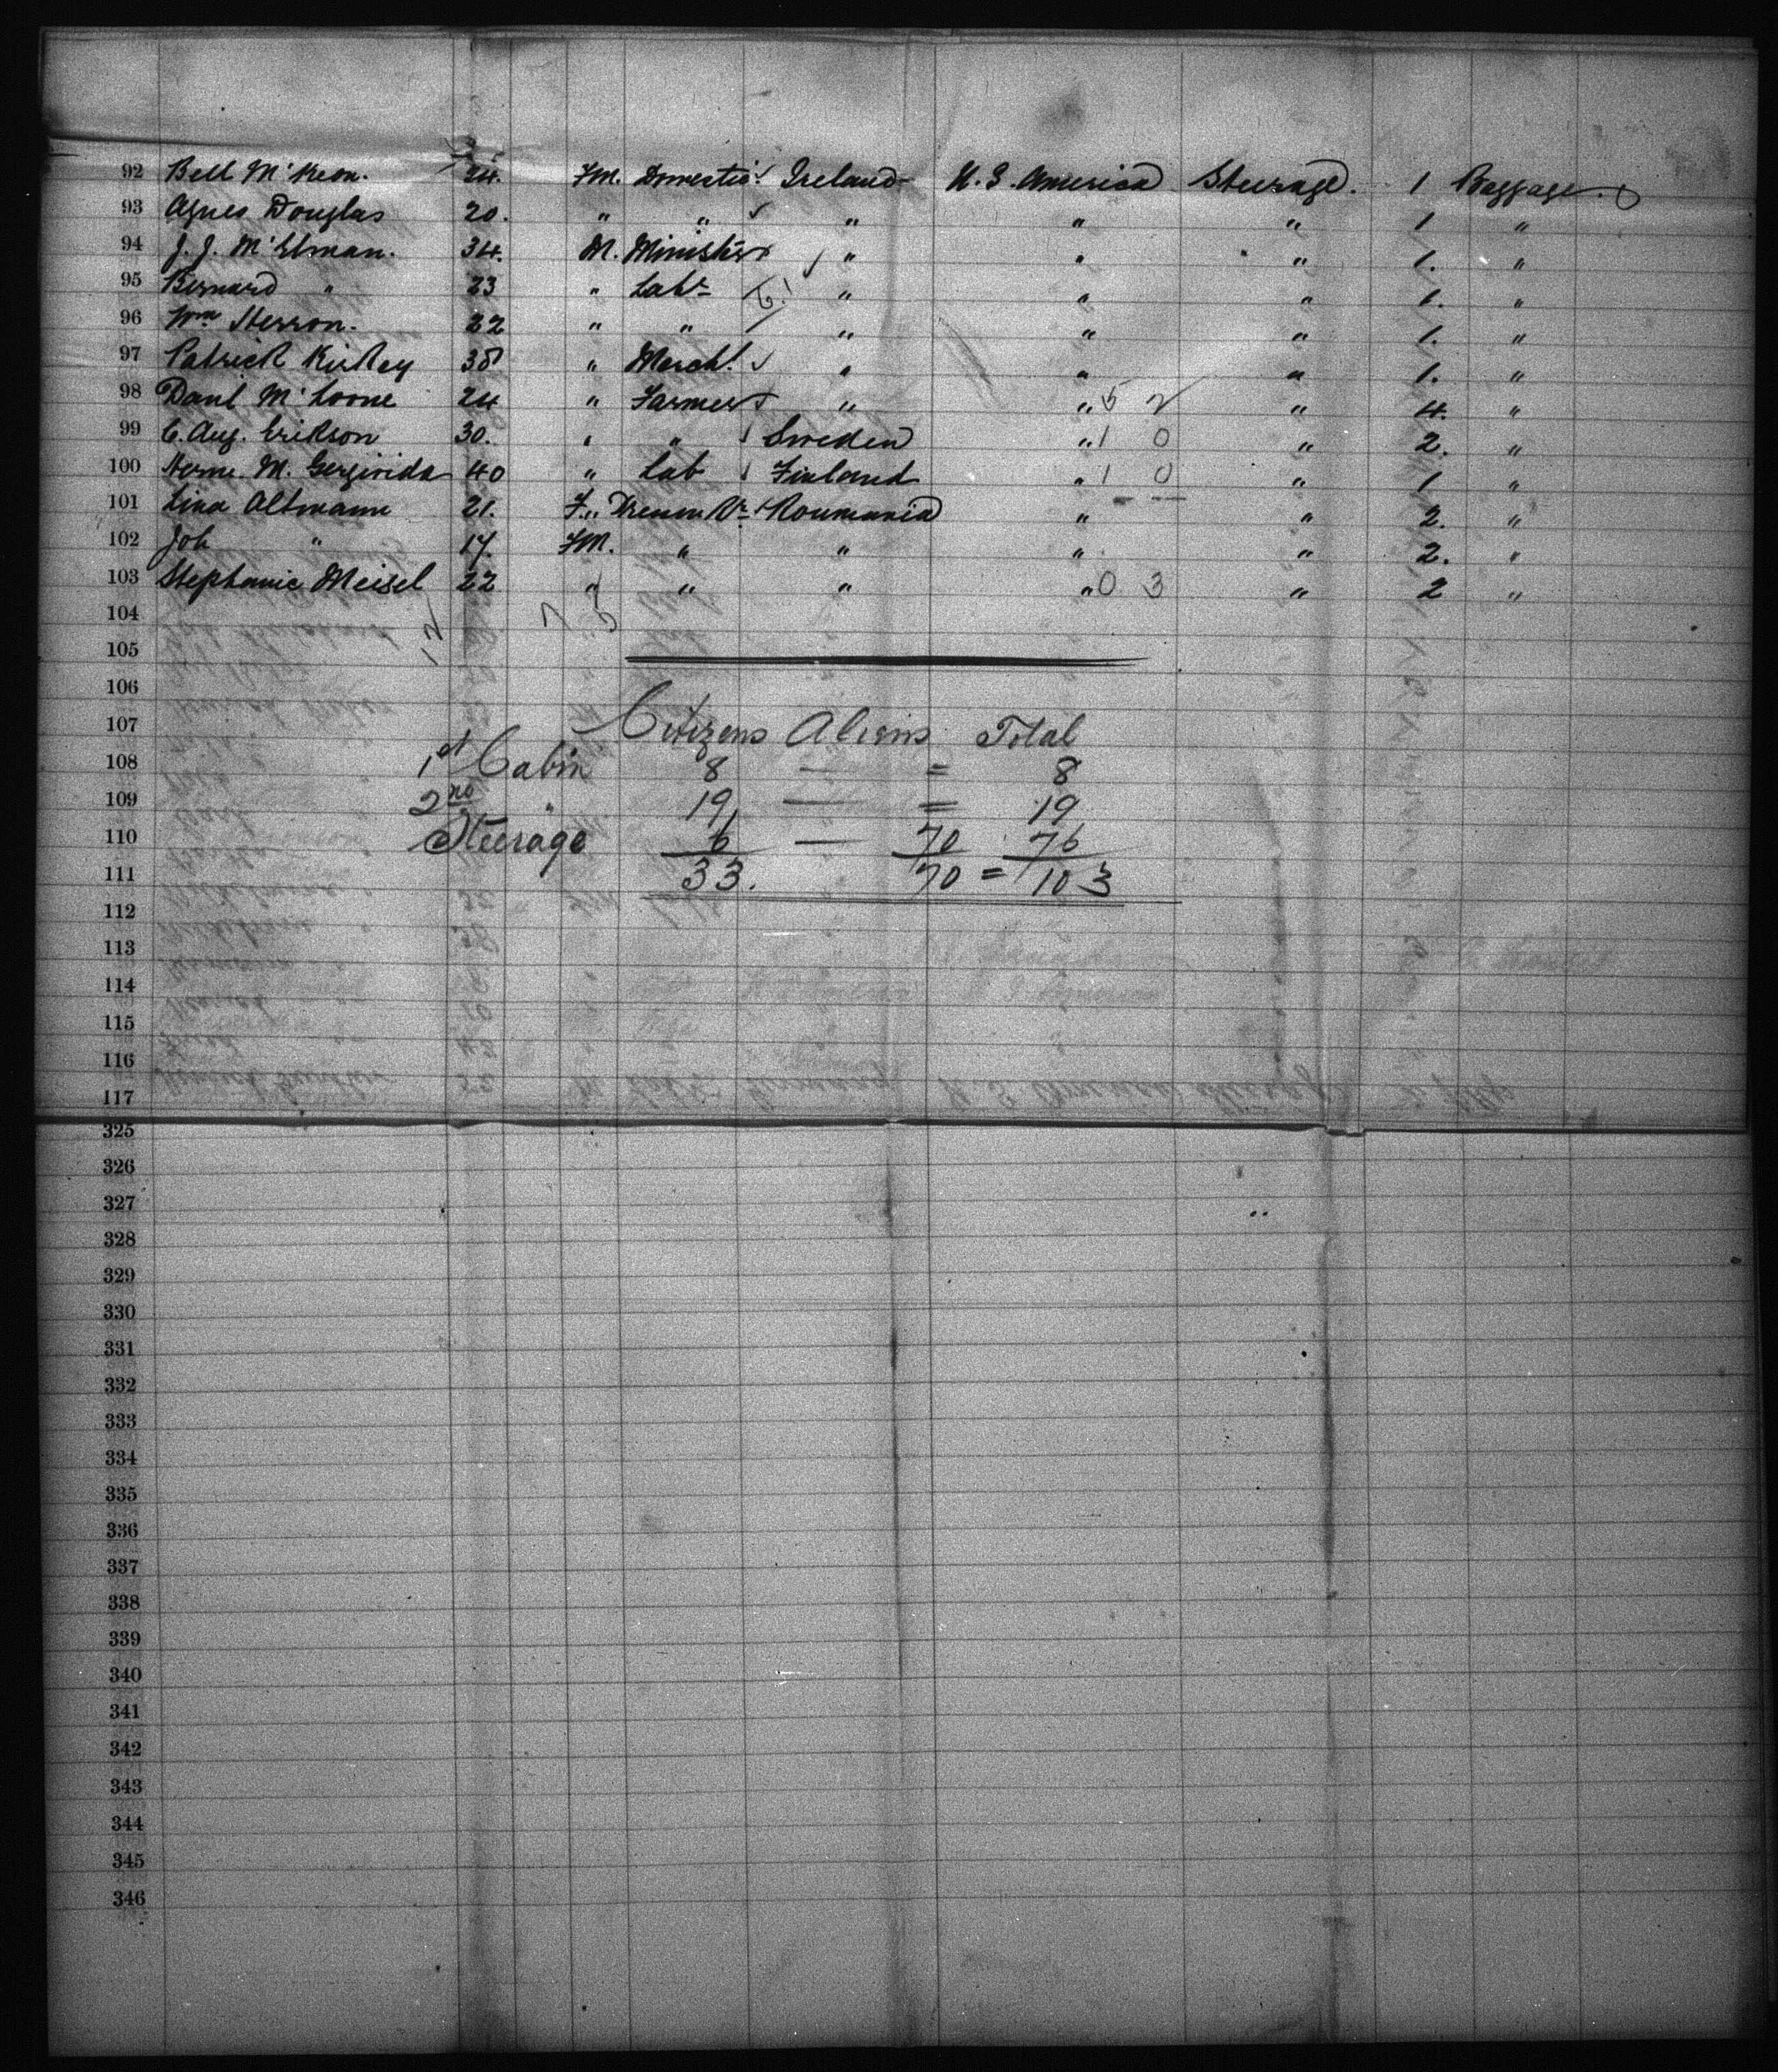 92 Bell M'Keon. 24. FM. Domestic Ireland U.S. America Steerage. 1 Baggage
93 Agnes Douglas 20. " " " " " 1 "
94 J. J. M'Elman. 34. M. Minister " " " 1. "
95 Bernard " 23 " Labr " " " 1. "
96 Wm Herron. 22 " " " " " 1. "
97 Patrick 38 " Mercht. " " " 1. "
98 Danl M'Loone 24 " Farmer " " 5 2 " 4. "
99 C. Aug. Erikson 30. " " Sweden " 1 0 " 2. "
100 M. 40 " Lab Finland " 1 0 " 1 "
101 Lina Altmann 21. Roumania " " 2. "
102 Joh " 17. FM. " " " " 2. "
103 Stephanie Meisel 22 " " " " 0 3 " 2 "
104
105
106
107 Citizens Aliens Total
108 1st Cabin 8 — = 8
109 2nd " 19 — = 19
110 Steerage 6 — 70 76
111 33. 70 = 103
112
113
114
115
116
117
325
326
327
328
329
330
331
332
333
334
335
336
337
338
339
340
341
342
343
344
345
346